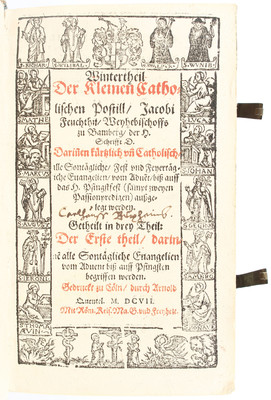 S.RICHAR. S.WILIBAL. S.WUNIB.
Wintertheil
Der Kleinen Catho-
lischen Postill/ Jacobi
Feuchthn/ Weyhebischoffs
zu Bamberg/ der H.
Schrifft D.
Darinen kürtzlich vñ Catholisch
alle Sontägliche/ Fest vnd Feyertäg-
liche Euangelien/ vom Aduẽt/ biß auff
das H. Pfingstfest (sampt zweyen
Passionpredigen) außge-
legt werden.
Getheilt in drey Theil:
Der Erste theil/ darin-
nẽ alle Sontägliche Euangelien
vom Aduent biß auff Pfingsten
begriffen werden.
Gedruckt zu Cöln/ durch Arnold
Quentel. M. DCVII.
Mit Röm. Keis. Ma. G. vnd Freyheit.
S.MATHE
S.LVCA
S.MARCO
S.IOHAN
S.THOM
AQVIN.